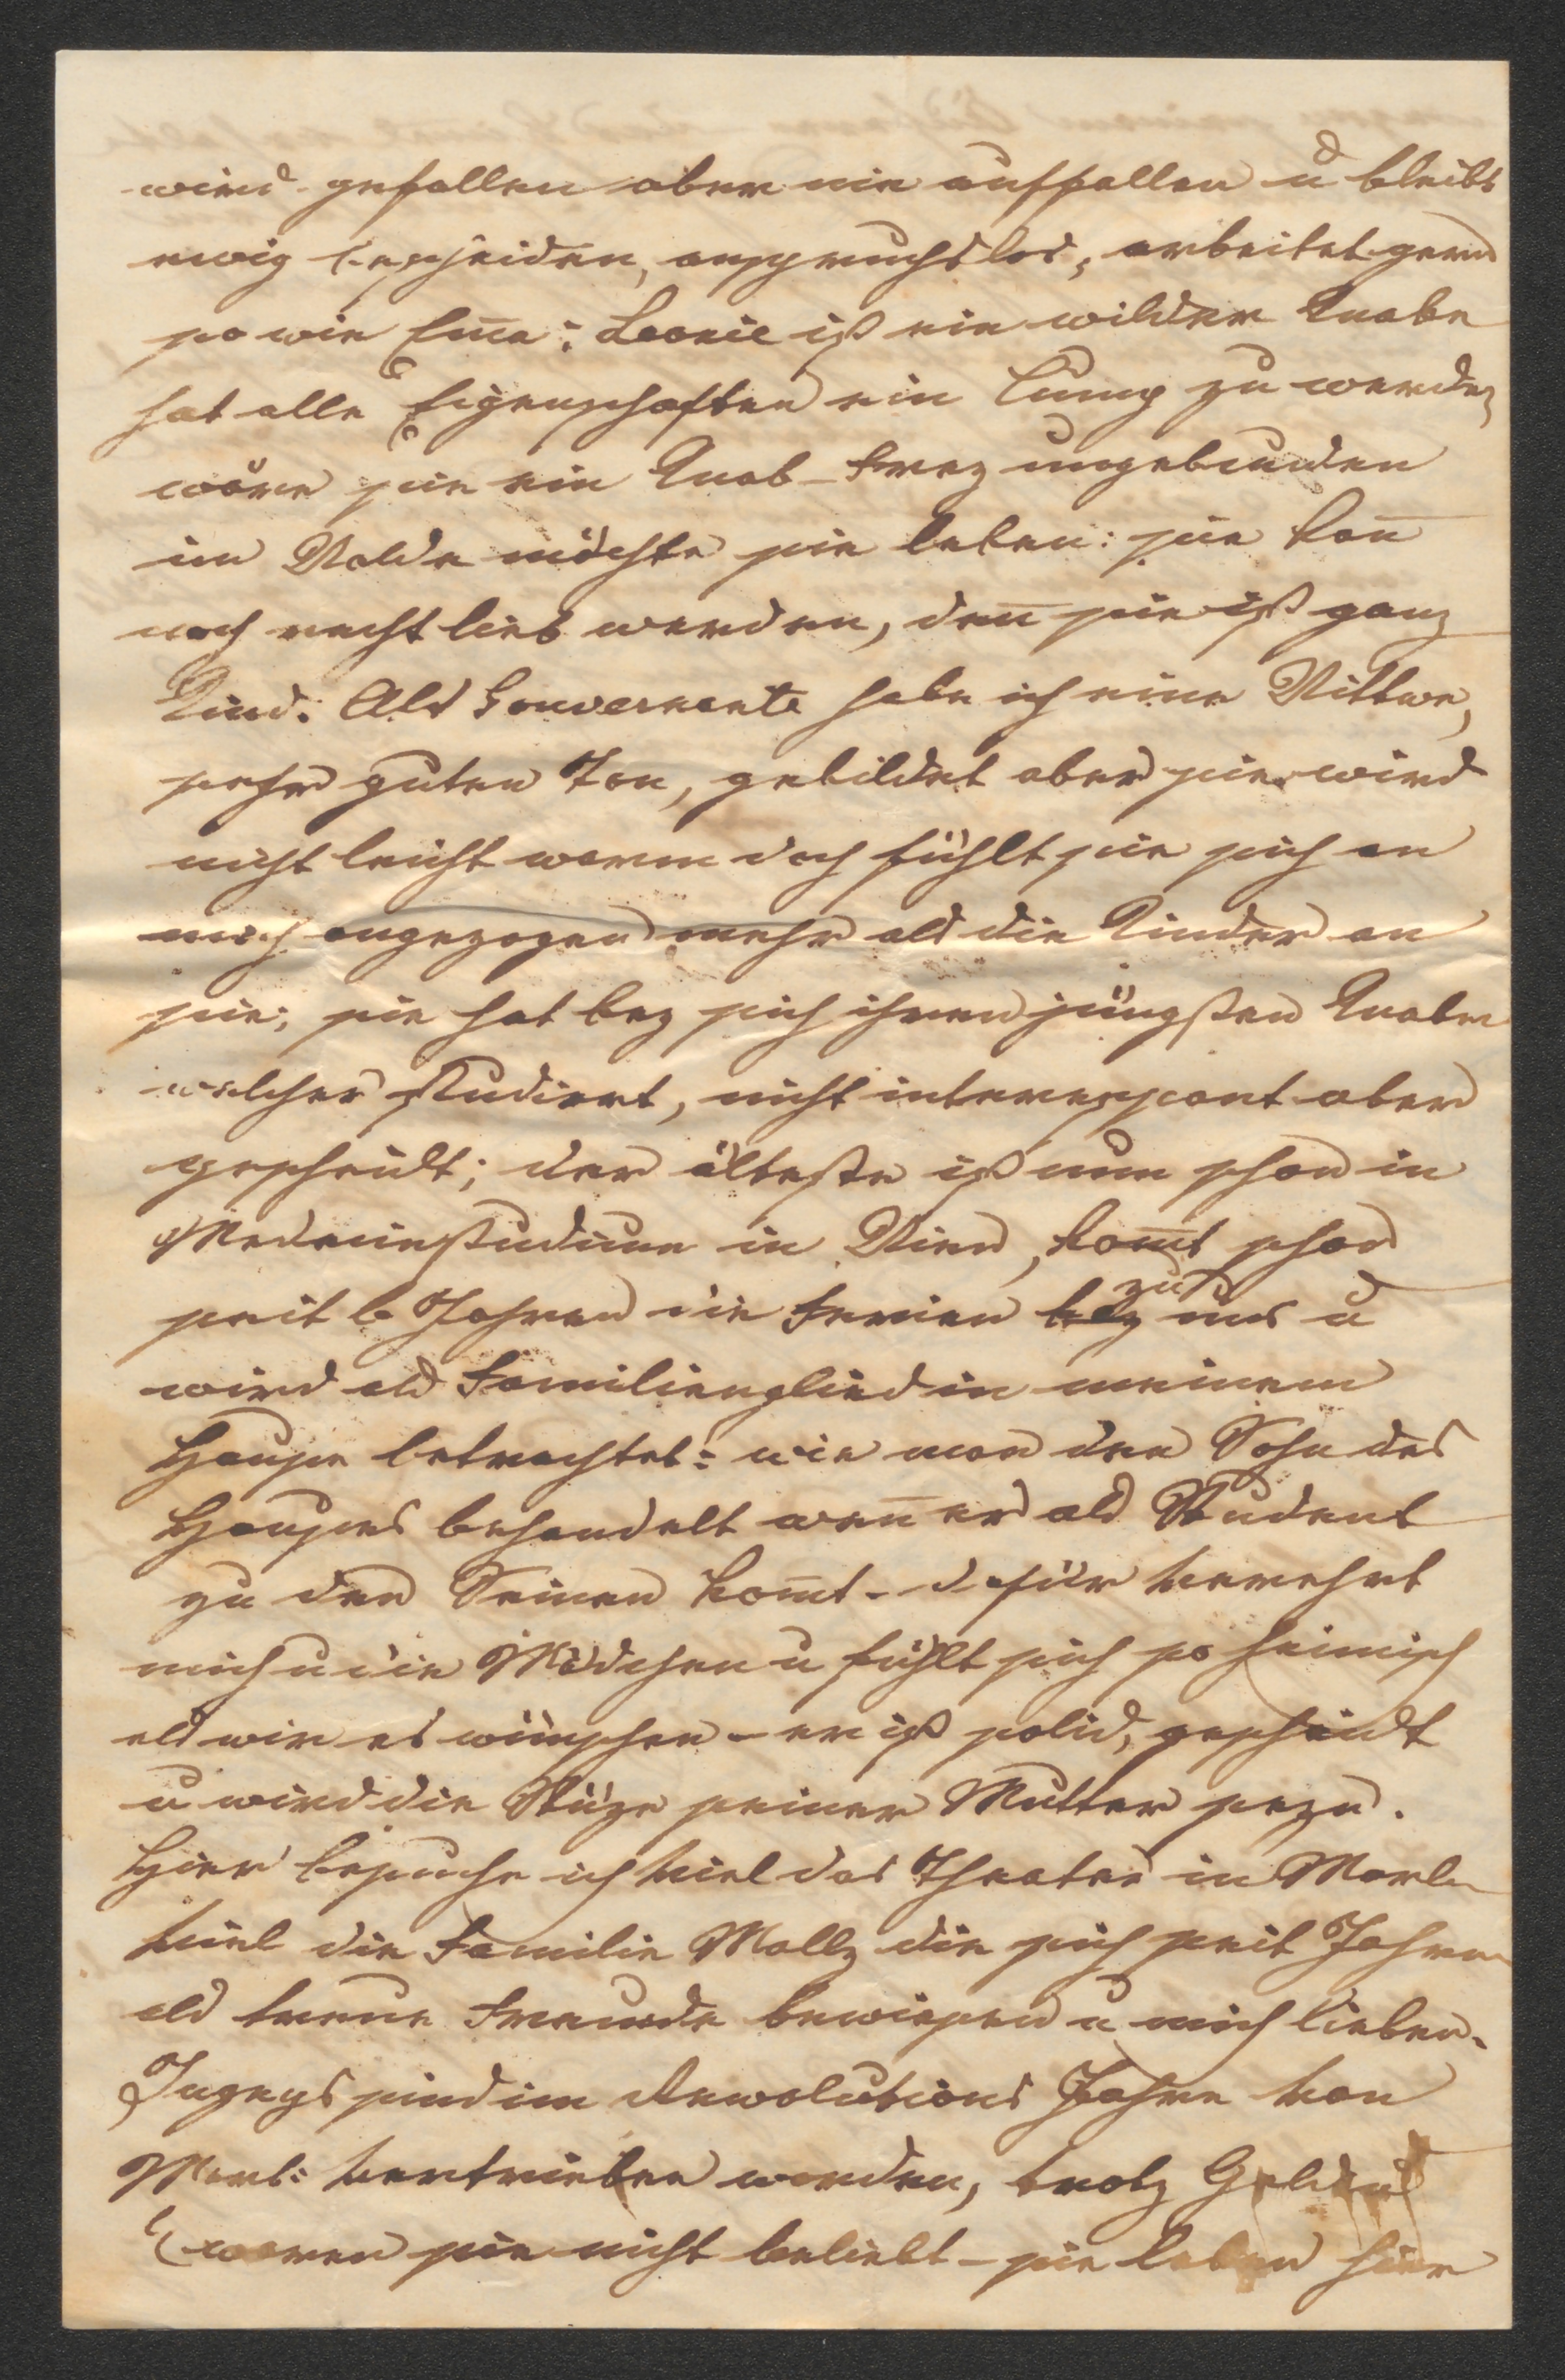 wird gefallen aber nie auffallen u bleibt
ewig bescheiden, anspruchslos, arbeitet gern
so wie Em̄a: Leonie ist ein wilder Knabe
hat alle Eigenschaften ein Lump zu werden
wäre sie ein Knab – frey ungebunden
im Walde möchte sie leben: sie kan̄
noch recht lieb werden, den̄ sie ist ganz
Kind. Als Gouvernante habe ich eine Wittwe,
sehr guten Ton, gebildet aber sie wird
nicht leicht warm doch fühlt sie sich an
mich angezogen mehr als die Kinder an
sie; sie hat bey sich ihren jüngsten Knaben
welcher studiert, nicht interessant aber
gescheidt; der älteste ist nun schon in
Medecinstudium in Wien, kom̄t schon
seit 6 Jahren die Ferien zu uns u
wird als Familienglied in meinem
Hause betrachtet: wie man den Sohn des
Hauses behandelt wen̄ er als Student
zu den Seinen kom̄t – dafür verehrt
mich u die Mädchen u fühlt sich so heimisch
als wir es wünschen – er ist solid, gescheidt
u wird die Stüze seiner Mutter seyn.
Hier besuche ich viel das Theater in Marb
viel die Familie Mally die sich seit Jahren
als treue Freunde bewiesen u mich lieben.
sind im Revolutions Jahre von
Marb: vertrieben worden, trotz Geldes
waren sie nicht beliebt – sie leben hier